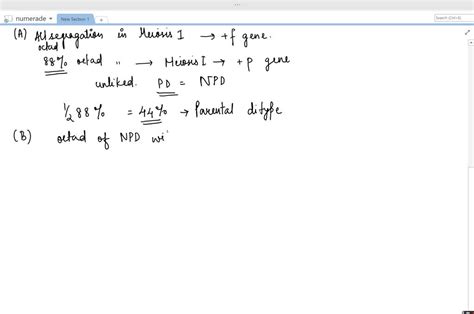 numerade
New Section 1
Search (Ctrl+E)
(A) All segregation in Meiosis I → +f gene.
octad
88% octad " → Meiosis I → +p gene
unliked. PD = NPD
1/2 88% = 44% → Parental ditype
(B) octad of NPD wi